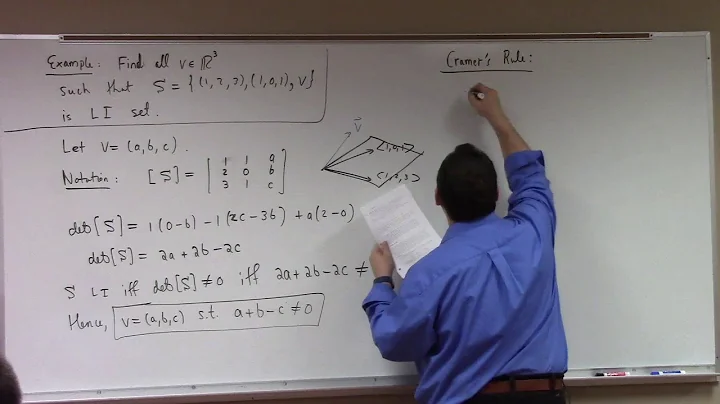 Example: Find all v ∈ ℝ³
such that S = {(1, 2, 3), (1, 0, 1), v}
is LI set.
Let v = (a, b, c).
Notation: [S] = [ 1 1 a
2 0 b
3 1 c ]
det[S] = 1(0-b) - 1(2c-3b) + a(2-0)
det[S] = 2a + 2b - 2c
S LI iff det[S] ≠ 0 iff 2a + 2b - 2c ≠
Hence, v = (a, b, c) s.t. a + b - c ≠ 0
v
(1, 0, 1)
(1, 2, 3)
Cramer's Rule: